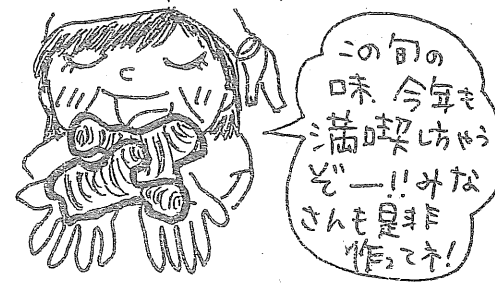 この旬の
味 今年も
満喫しちゃう
ぞー!!みな
さんも是非
作ってネ!